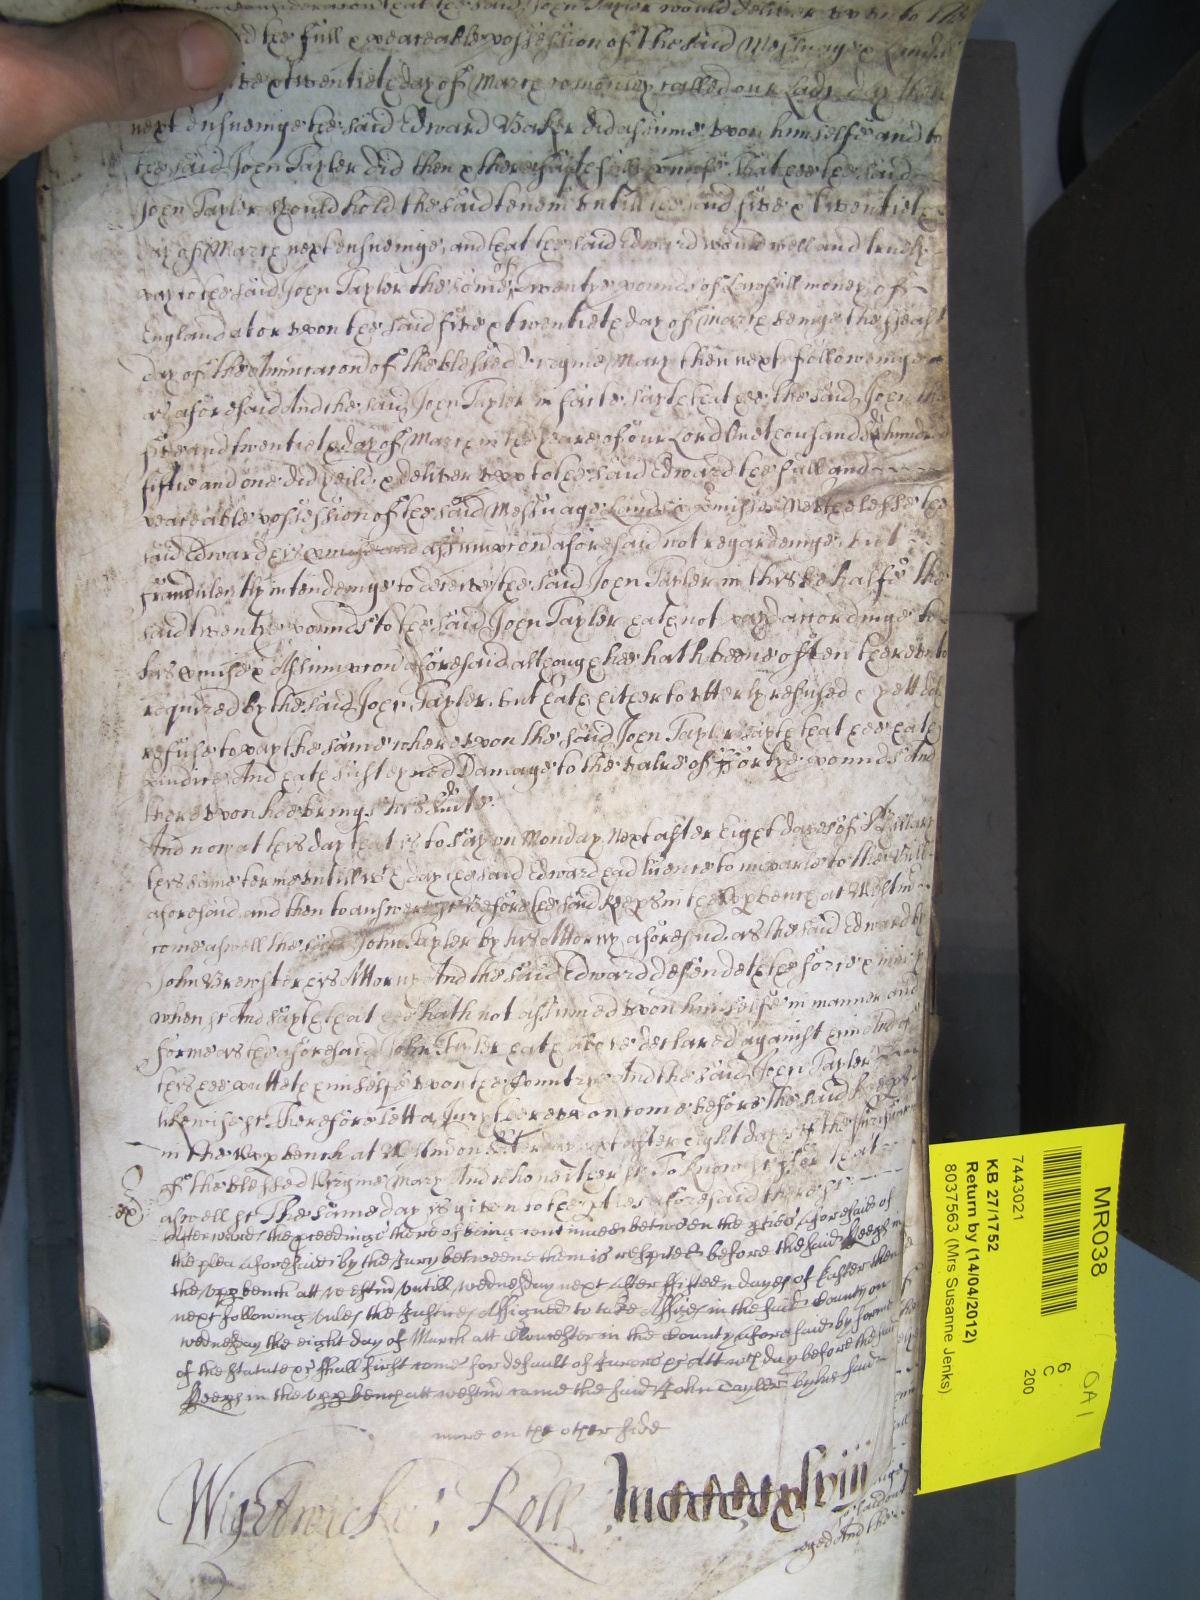 consideracon that the said John Tayler would deliver upp unto the
the full & peaceable possession of the said Messuage & Lands
five & twentieth day of March comonly called our Lady day then
next ensueinge the said Edward Baker did assume upon himselfe and to
the said John Tayler did then & there faithfully promise That hee the said
John Tayler would hold the said tenemt untill the said five & twentieth
day of March next ensueinge, and that the said Edward would well and truely
pay to the said John Tayler the some of Twenty pounds of Lawfull money of
England at or upon the said five & twentieth day of March beinge the ffeast
day of the Annuncacon of the blessed Virgine Mary then next followeinge
as aforesaid And the said John Tayler in facte saith that hee the said John the
five and twentieth day of March in the yeare of our Lord One thousand six hundred
fiftie and one did yeild & deliver upp to the said Edward the full and
peaceable possession of the said Messuage Lands & pmisses Nevthelesse the
said Edward his pmise and assumpcon aforesaid not regardeinge, but
fraudulently intendeinge to deceive the said John Tayler in this behalfe the
said twenty pounds to the said John Tayler hath not payd accordinge to
his pmise & Assumpcon aforesaid although hee hath beene often thereunto
required by the said John Tayler. but hath hitherto utterly refused & yett doth
refuse to pay the same whereupon the said John Tayler saith that hee hath
piudice And hath susteyned Damage to the value of fforty pounds And
thereupon hee brings his suite.
And now at this day that is to say on Monday next after eight dayes of St Hillary
this same terme untill wch day the said Edward had licence to imparle to the bill
aforesaid and then to answere &c Before the said Keeps in the Upp bench at Westmr
come aswell the said John Tayler by his Attorny aforesaid, as the said Edward by
John Brewster his Attorny And the said Edward defendeth the force & iniury
when &c And saith that hee hath not assumed upon himselfe in manner and
forme as the aforesaid John Tayler hath above declared against him And of
this hee putteth himselfe upon the Country And the said John Tayler
likewise &c Therefore lett a Jury thereupon come before the said Keeps
in the Upp bench at Westmr on next after eight dayes of the Purificacon
of the blessed Virgine Mary And who neither &c To Know &c Because that
aswell &c The same day is given to the pties aforesaid there &c
Afterwards the pceedings thereof being continued betweene the pties aforesaid of
the plea aforesaid by the Jury betweene them is respited before the said Keeps in
the Upp bench att Westmr untill wednesday next after fifteen dayes of Easter then
next following unles the Justices Assigned to take Assizes in the said County on
wednesday the eight day of March att Gloucester in the County aforesaid by forme
of the Statute &c shall first come for default of Jurors &c Att wch day before the said
Keeps in the Upp bench att westmr came the said John Tayler by his said
more on the other side
Wightwicke: Roll
MR038
6
C
200
OA1
7443021
KB 27/1752
Return by (14/04/2012)
8037563 (Mrs Susanne Jenks)